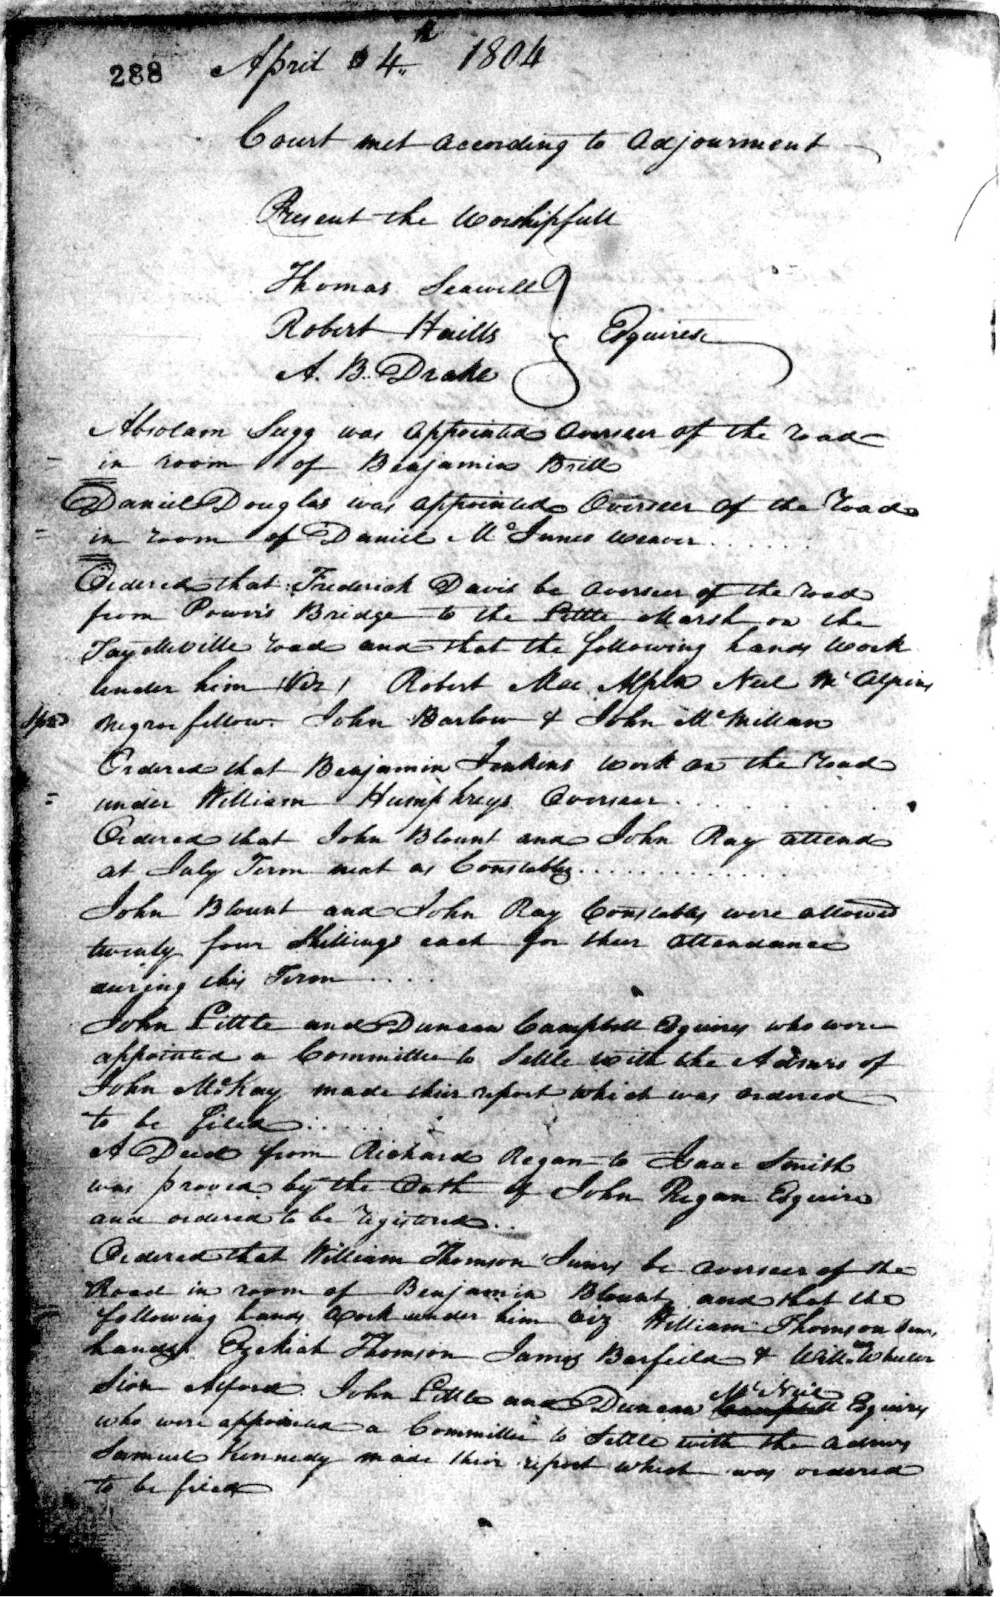 288 April 4th 1804
Court met according to adjourment
Present the Worshipfull
Thomas Seawell
Robert Haills Esquires
A. B. Drake
Absolam Sugg was appointed Overseer of the road
in room of Benjamin Britt
Daniel Douglas was appointed Overseer of the road
in room of Daniel McInnes weaver
Ordered that Frederick Davis be overseer of the road
from Powers Bridge to the Little Marsh on the
Fayetteville road and that the following hands work
under him Viz Robert Mac Alpin Neil McAlpins
negroe fellow John Barlow & John McMillan
Ordered that Benjamin Jenkins work on the road
under William Humphreys Overseer
Ordered that John Blount and John Ray attend
at July Term next as Constables
John Blount and John Ray Constables were allowed
twenty four Shillings each for their attendance
during this Term
John Little and Duncan Campbell Esquires who were
appointed a Committee to Settle with the Admrs of
John McKay made their report which was ordered
to be filed
A Deed from Richard Regan to Isaac Smith
was proved by the Oath of John Regan Esquire
and ordered to be registered
Ordered that William Thomson Junr be overseer of the
Road in room of Benjamin Blount and that the
following hands work under him viz William Thomson Senr
hands Ezekiah Thomson James Barfeild & Willm Wheeler
Sion Alford John Little and Duncan Campbell McNeil Esquires
who were appointed a Committee to Settle with the admrs
Samuel Kennedy made their report which was ordered
to be filed